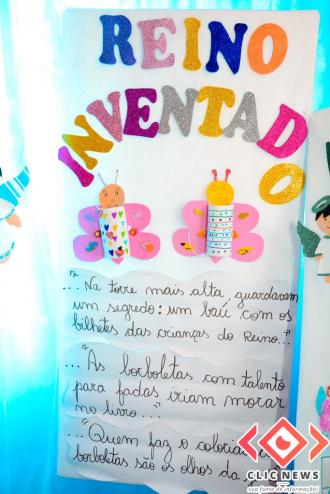 REINO
INVENTADO
"... Na torre mais alta, guardavam
um segredo: um baú com os
bilhetes das crianças do Reino..."
"... As borboletas com talento
para fadas iriam morar
no livro..."
"... Quem faz o colorido
borboletas são os olhos da
CLIC NEWS
sua fonte de informação!
CLIC NEWS
sua fonte de informação!